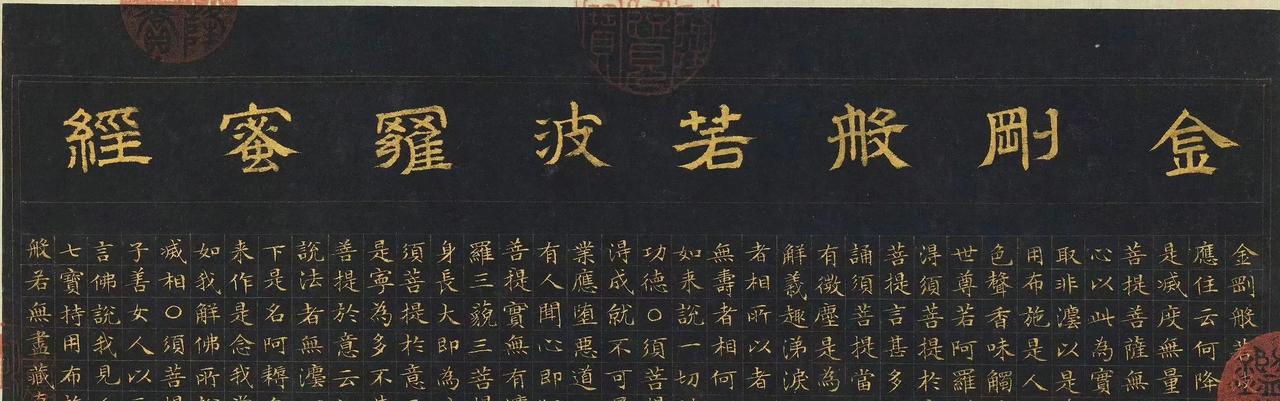 金剛般若波羅蜜經
金剛般若波
應住云何降
是滅度無量
菩提菩薩無
心以此為實
取非灋以是
用布施是人
色聲香味觸
世尊若阿羅
淂須菩提於
菩提言甚多
誦須菩提當
有微塵是為
解義趣涕淚
者相所以者
無壽者相何
如来說一切
功德〇須菩
淂成就不可
業應堕惡道
有人聞心即
菩提實無有
羅三藐三菩
身長大即為
須菩提於意
是寧為多不
菩提於意云
說法者無灋
下是名阿耨
来作是念我
如我解佛所
滅相〇須菩
子善女人以
言佛說我見
七寶持用布
般若無盡藏